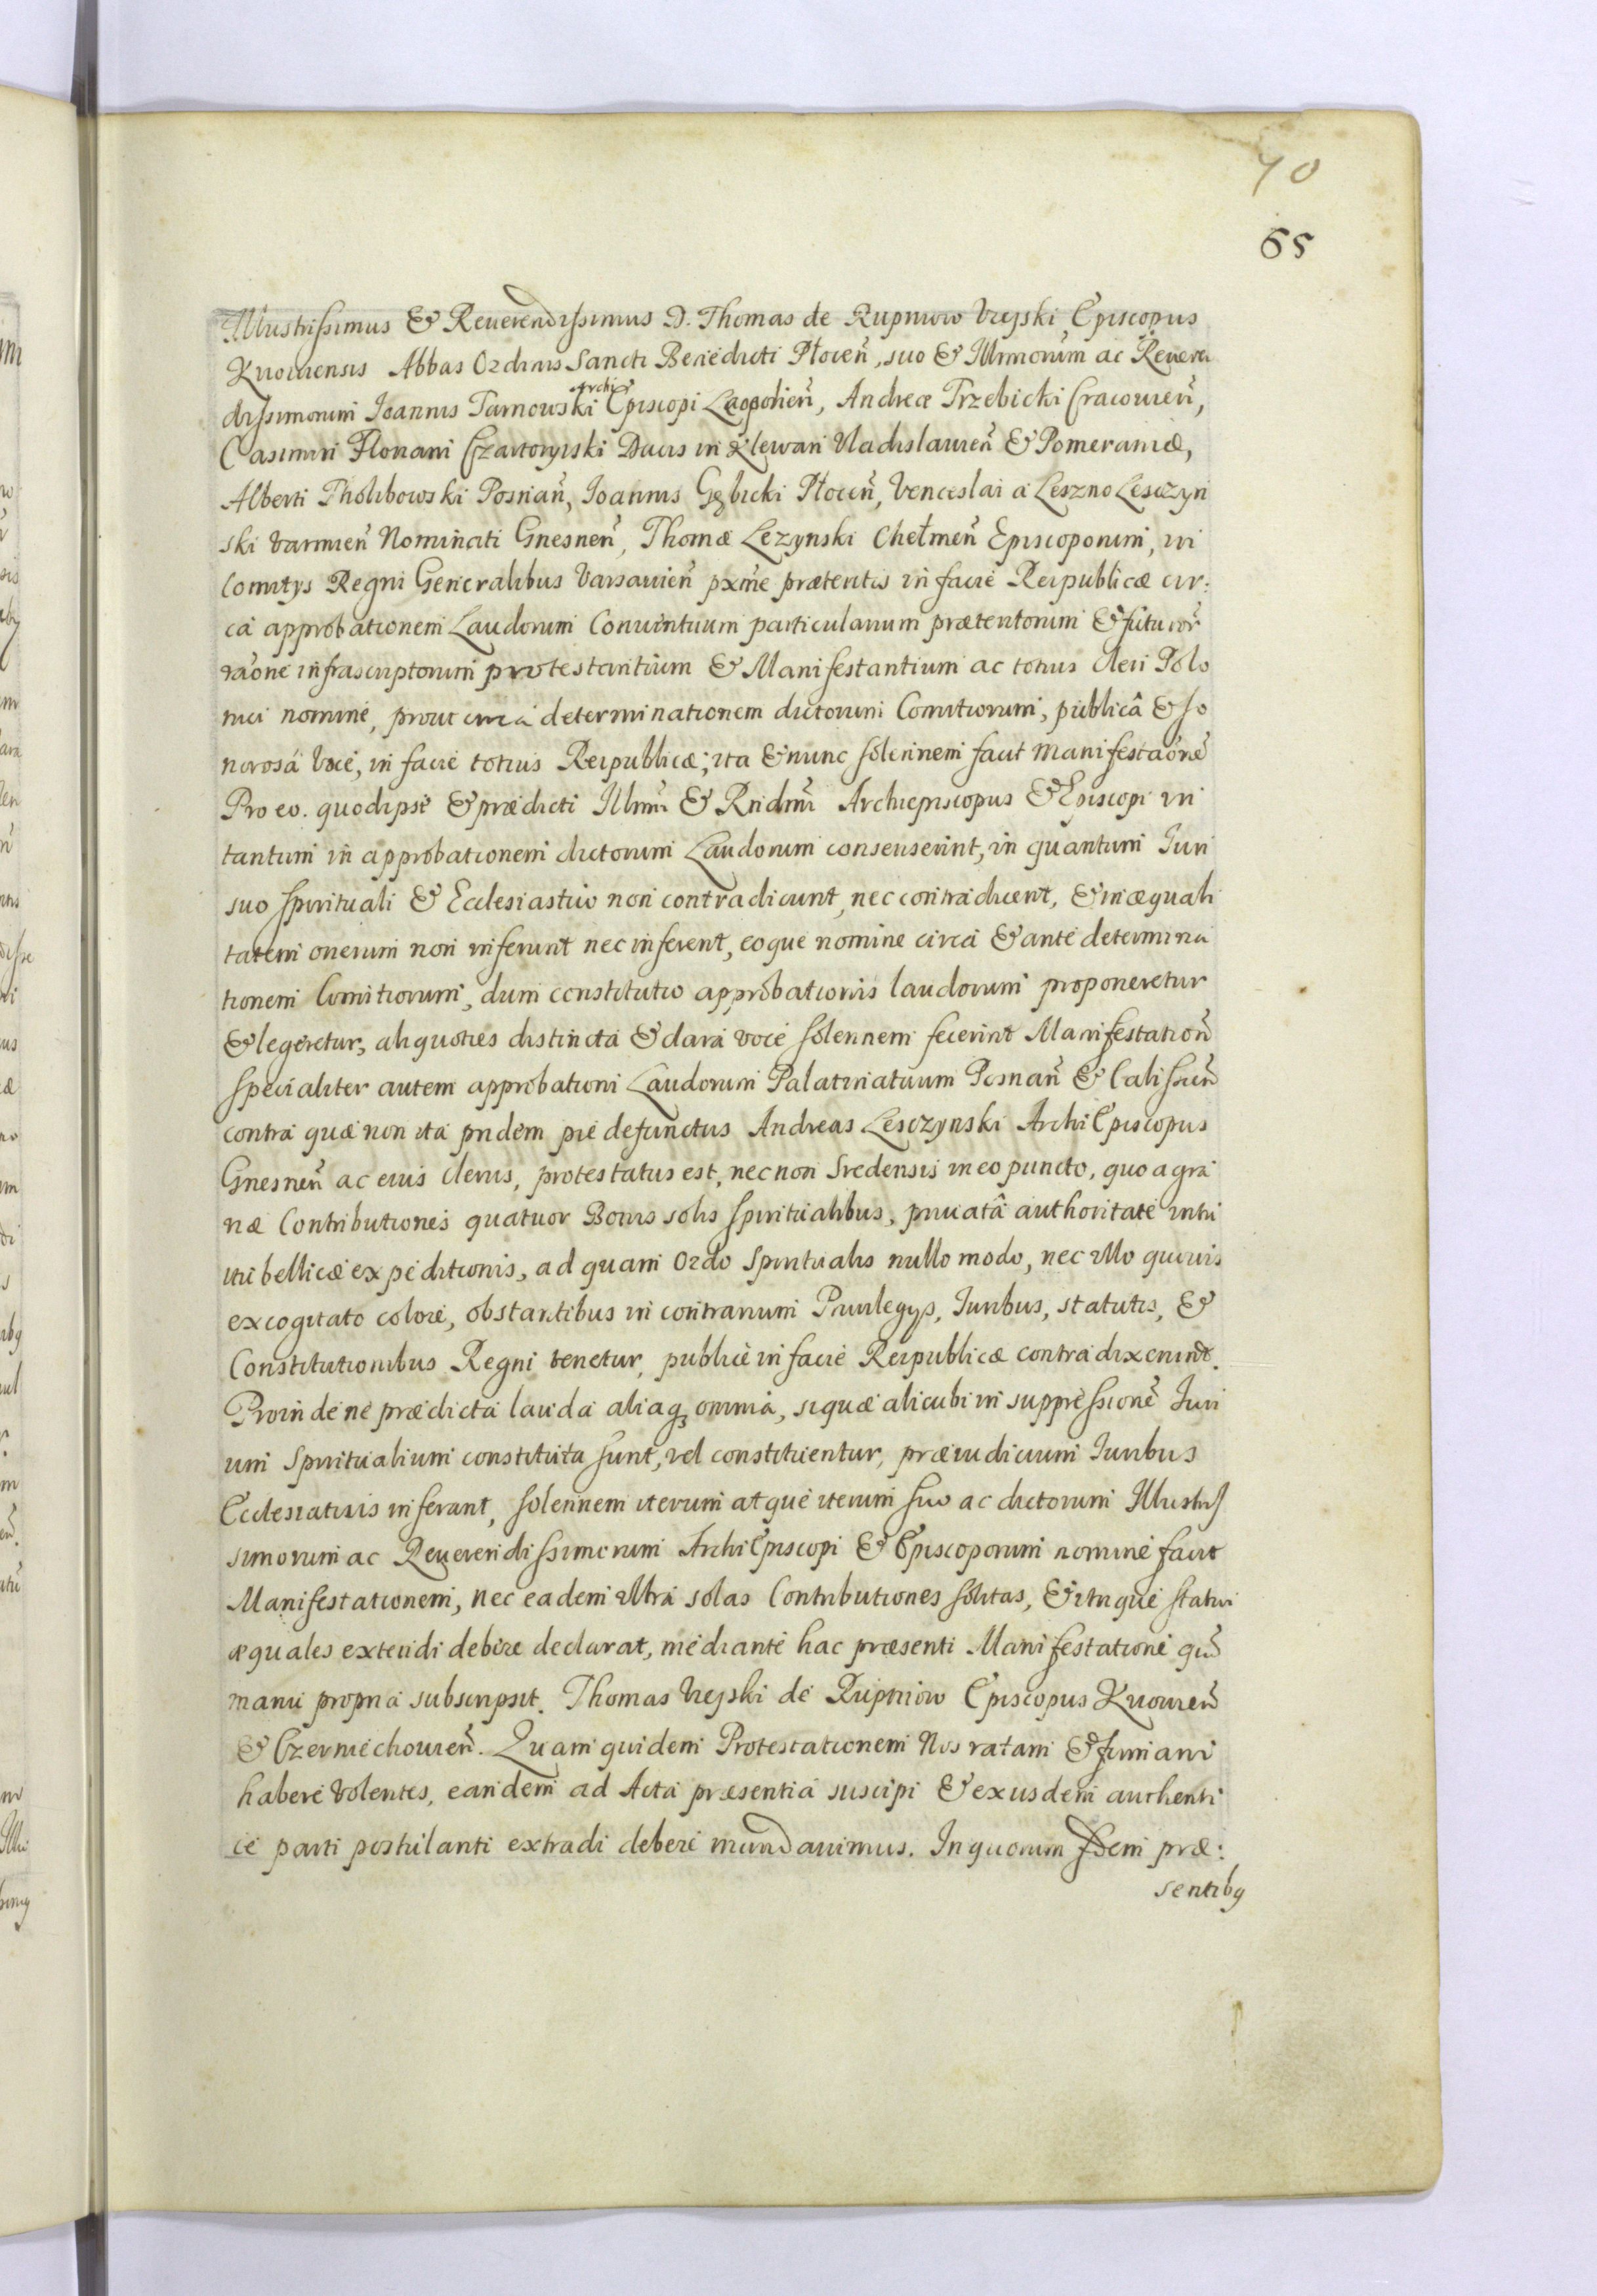 70
65
Illustrissimus & Reuerendissimus D. Thomas de Rupniow Vieyski Episcopus
Kuouiensis Abbas Ordinis Sancti Benedicti Płoceñ, suo & Illrmorum ac Reueren
dissimorum Ioannis Tarnowski Archi Episcopi Leopolien̄, Andreæ Trzebicki Cracouien̄,
Casimiri Floriani Czartoryiski Ducis in Klewan Vladislauien̄ & Pomeraniæ,
Alberti Tholibowski Posnan̄, Ioannis Gębicki Płocen̄, Venceslai a Leszno Lesczyn
ski Varmien̄ Nominati Gnesnen̄, Thomæ Lezynski Chełmen̄ Episcoporum, in
Comitys Regni Generalibus Varsauien̄ pxm̄e prætentis in facie Reipublicæ cir:
ca approbationem Laudorum Conuintuum particularium prætentorum & futuror̄
raōne infrascriptorum protestantium & Manifestantium ac totius Cleri Polo
nici nomine, prout circa determinationem dictorum Comitiorum, publicâ & so
norosa voce, in facie totius Reipublicæ; ita & nunc solennem facit Manifestaōnē
Pro eo. quod ipse & prædicti Illmi & Rndmi Archiepiscopus & Episcopi in
tantum in approbationem dictorum Laudorum consenserint, in quantum Iuri
suo spirituali & Ecclesiastico non contradicunt, nec contradicent, & inæquali
tatem onerum non inferunt nec inferent, eoque nomine circa & ante determina
tionem Comitiorum, dum constitutio approbationis laudorum proponeretur
& legeretur, aliquoties distincta & clara voce solennem fecerint Manifestation̄
specialiter autem approbationi Laudorum Palatinatuum Posnan̄ & Calissien̄
contra quæ non ita pridem pie defunctus Andreas Lesczynski ArchiEpiscopus
Gnesnen̄ ac eius Clerus, protestatus est, nec non Sredensis in eo puncto, quo agra
riæ Contributiones quatuor Bonis solis spiritualibus, priuatâ authoritate intu
itu bellicæ expeditionis, ad quam Ordo Spiritualis nullo modo, nec ullo quouis
excogitato colore, obstantibus in contrarium Priuilegys, Iuribus, statutis, &
Constitutionibus Regni tenetur, publice in facie Reipublicæ contradixerint.
Proinde ne prædicta lauda aliaq; omnia, siquæ alicubi in suppressionē Iuri
um Spiritualium constituta sunt, vel constituentur, præiudicium Iuribus
Ecclesiaticis inferant, solennem iterum atque iterum suo ac dictorum Illustris
simorum ac Reuerendissimorum ArchiEpiscopi & Episcoporum nomine facit
Manifestationem, nec eadem ultra solas Contributiones solitas, & utrique statui
æquales extendi debere declarat, mediante hac præsenti Manifestatione quā
manu propria subscripsit. Thomas Vieyski de Rupniow Episcopus Kuouien̄
& Czerniechouien̄. Quam quidem Protestationem Nos ratam & firmam
habere volentes, eandem ad Acta præsentia suscipi & ex iisdem authenti
ce parti postulanti extradi debere mandauimus. In quorum fidem præ:
sentibq